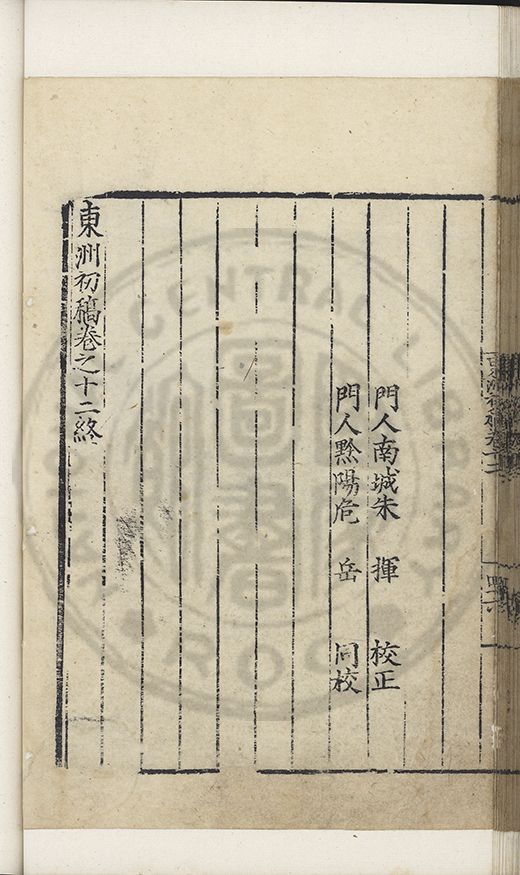 門人南城朱　揮　校正
門人黟陽危　岳　同校
東洲初稿卷之十二終